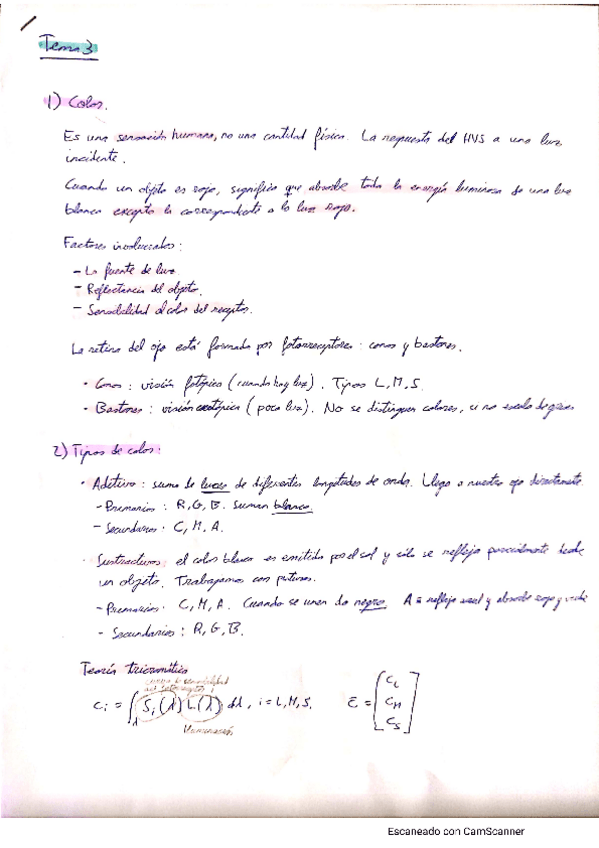 Tema 3
1) Color.
Es una sensación humana, no una cantidad física. La respuesta del HVS a una luz
incidente.
Cuando un objeto es rojo, significa que absorbe toda la energía luminosa de una luz
blanca excepto la correspondiente a la luz roja.
Factores involucrados:
- La fuente de luz.
- Reflectancia del objeto.
- Sensibilidad al color del receptor.
La retina del ojo está formada por fotorreceptores: conos y bastones.
· Conos: visión fotópica (cuando hay luz). Tipos L, M, S.
· Bastones: visión escotópica (poca luz). No se distinguen colores, si no escala de grises
2) Tipos de color:
· Aditivo: suma de luces de diferentes longitudes de onda. Llega a nuestro ojo directamente.
- Primarios: R, G, B. Suman blanco.
- Secundarios: C, M, A.
· Sustractivos: el color blanco es emitido por el sol y sólo se refleja parcialmente desde
un objeto. Trabajamos con pinturas.
- Primarios: C, M, A. Cuando se unen da negro. A = refleja azul y absorbe rojo y verde
- Secundarios: R, G, B.
Teoría tricromática
curva de sensibilidad
del fotorreceptor i
c_i = ∫_λ S_i(λ) L(λ) dλ, i = L, M, S. c̄ = [C_L C_M C_S]
iluminación
Escaneado con CamScanner